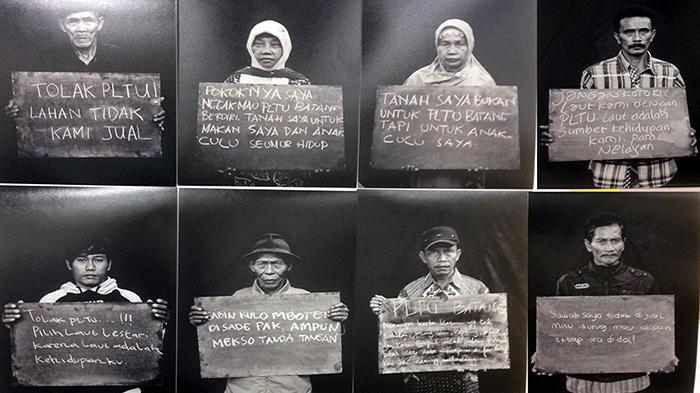 TOLAK PLTU!
LAHAN TIDAK
KAMI JUAL
POKOKNYA SAYA
NGGAK MAU PLTU BATANG
BERDIRI. TANAH SAYA UNTUK
MAKAN SAYA DAN ANAK
CUCU SEUMUR HIDUP
TANAH SAYA BUKAN
UNTUK PLTU BATANG
TAPI UNTUK ANAK-
CUCU SAYA.
JANGAN KOTORI
Laut kami dengan
PLTU. Laut adalah
Sumber kehidupan
Kami, Para
Nelayan
TOLAK PLTU....!!!
Pilih Laut Lestari,
karena Laut adalah
Kehidupanku.
SABIN KULO MBOTEN
DISADE PAK, AMPUN
MEKSO TANDA TANGAN
PLTU BATANG
Sawah saya tidak di jual
mau
tetap ora di dol!